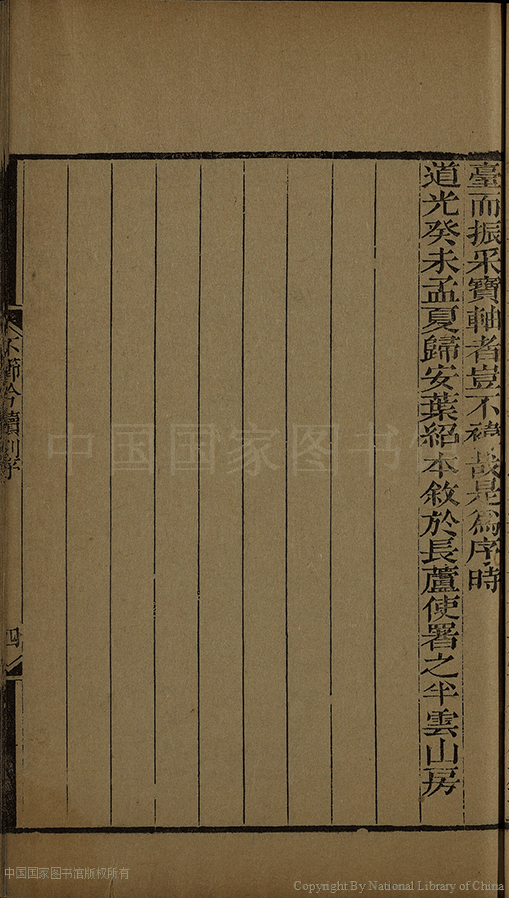 臺而振采寶軸者豈不褘哉是為序時
道光癸未孟夏歸安葉紹本敘於長蘆使署之半雲山房
續刊序
四
中国国家图书馆
中国国家图书馆版权所有
Copyright By National Library of China